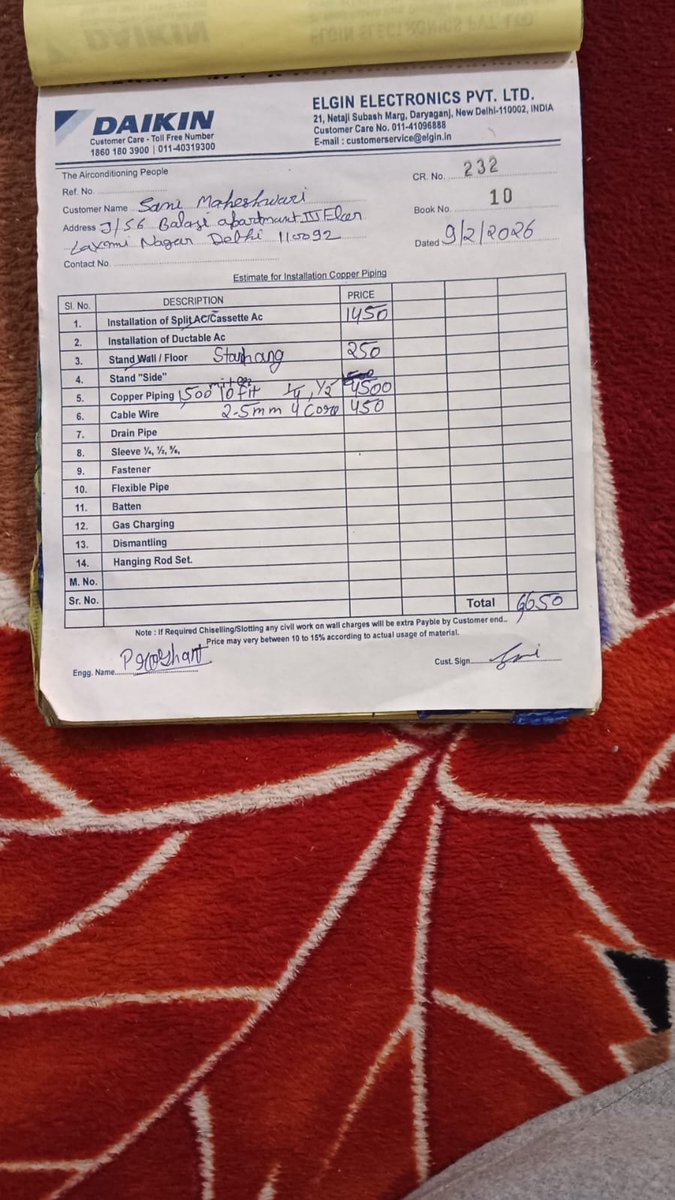 DAIKIN
Customer Care - Toll Free Number
1860 180 3900 | 011-40319300
ELGIN ELECTRONICS PVT. LTD.
21, Netaji Subash Marg, Daryaganj, New Delhi-110002, INDIA
Customer Care No. 011-41096888
E-mail : customerservice@elgin.in
The Airconditioning People
CR. No. 232
Ref. No.
Customer Name Sami Maheshwari
Book No. 10
Address J/56 Balaji apartment III
Laxmi Nagar Delhi 110092
Dated 9/2/2026
Contact No.
Estimate for Installation Copper Piping
Sl. No. DESCRIPTION PRICE
1. Installation of Split AC/Cassette Ac 1450
2. Installation of Ductable Ac
3. Stand Wall / Floor 250
4. Stand "Side"
5. Copper Piping 1500 10 fit 1/4, 1/2 4500
6. Cable Wire 2.5mm 4 Core 450
7. Drain Pipe
8. Sleeve ¼, ½, ⅝,
9. Fastener
10. Flexible Pipe
11. Batten
12. Gas Charging
13. Dismantling
14. Hanging Rod Set.
M. No.
Sr. No.
Total 6650
Note : If Required Chiselling/Slotting any civil work on wall charges will be extra Payble by Customer end..
Price may very between 10 to 15% according to actual usage of material.
Engg. Name
Cust. Sign